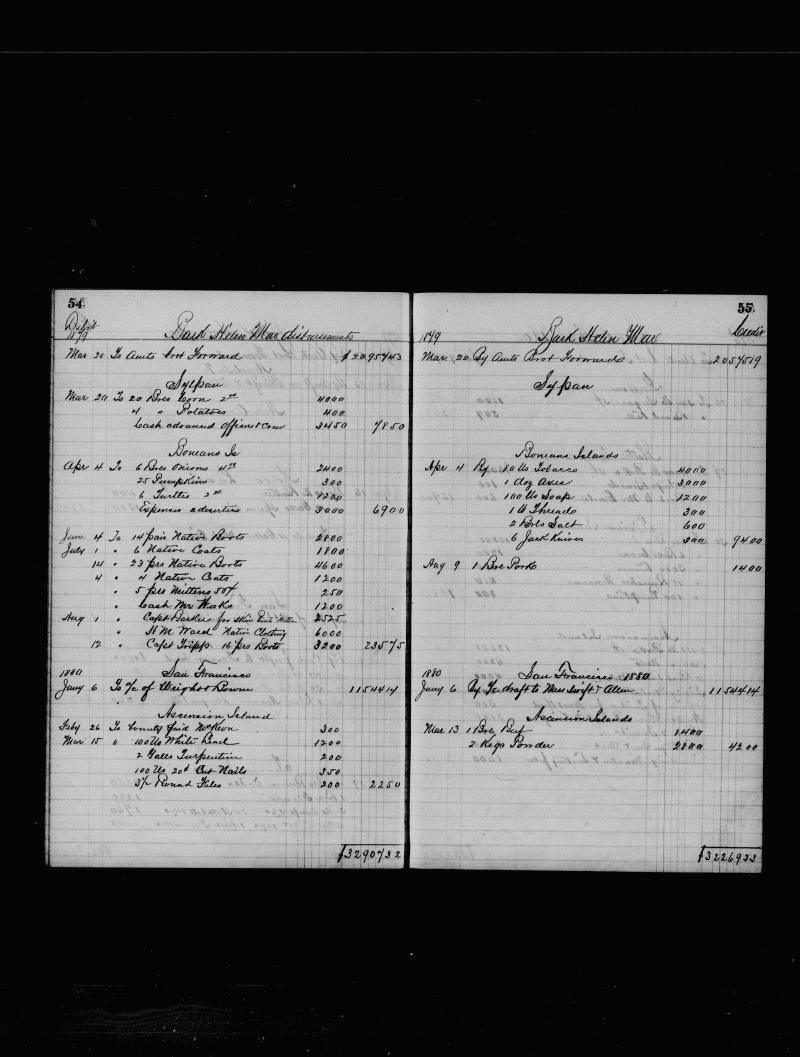 54
Debit
1879 Bark Helen Mar disbursements
Mar 20 To Amts brot Forward $ 2095743
Sypan
Mar 20 To 20 Bbls Corn 2.00 4000
4 " Potatoes 400
Cash advanced officers & crew 3450 7850
Bonians Is
Apr 4 To 6 Bbls Onions 4.00 2400
25 Pumpkins 300
6 Turtles 2.00 1200
Expenses 2 deserters 3000 6900
June 4 To 14 pair Native Boots 2800
July 1 " 6 Native Coats 1800
14 " 23 prs Native Boots 4600
4 " 4 Native Coats 1200
" 5 prs Mittens 50¢ 250
" Cash Mr 1200
Aug 1 " Capt Barker for 2525
" H M Ward Native Clothing 6000
12 " Capt Tripp 16 prs Boots 3200 23575
1880 San Francisco
Jany 6 To a/c of Wright & Bowne 1154414
Ascension Island
Feby 26 To bounty paid McKeon 300
Mar 15 " 100 lbs White Lead 1200
2 Galls Turpentine 200
100 lbs 20d Cut Nails 350
3/12 Round Files 200 2250
$3290732
55
Credit
1879 Bark Helen Mar
Mar 20 By Amts Brot Forwards 2057519
Sypan
Bonians Islands
Apr 4 By 80 lbs Tobacco 4000
1 doz Axes 3000
100 lbs Soap 1200
1 lb Threads 300
2 Bbls Salt 600
6 Jack Knives 300 9400
Aug 9 1 Bbl Pork 1400
1880 San Francisco 1880
Jany 6 By draft to Mess Swift & Allen 1154414
Ascension Islands
Mar 13 1 Bbl Beef 1400
2 Kegs Powder 2800 4200
$3226933